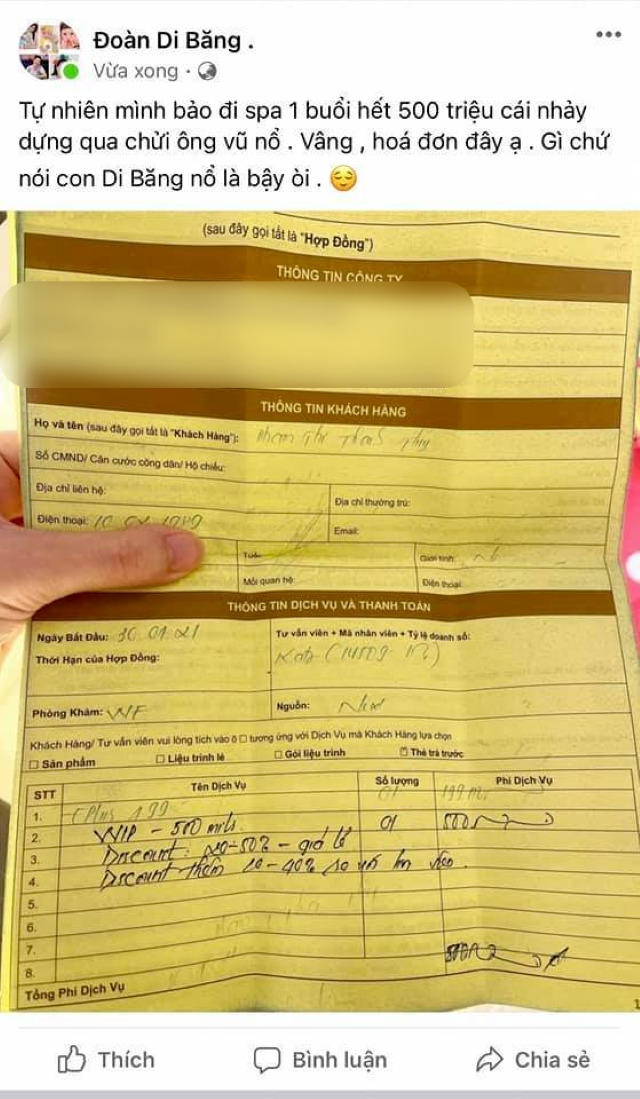 Đoàn Di Băng .
Vừa xong ·
Tự nhiên mình bảo đi spa 1 buổi hết 500 triệu cái nhảy
dựng qua chửi ông vũ nổ . Vâng , hoá đơn đây ạ . Gì chứ
nói con Di Băng nổ là bậy òi . 😌
(sau đây gọi tắt là "Hợp Đồng")
THÔNG TIN CÔNG TY
THÔNG TIN KHÁCH HÀNG
Họ và tên (sau đây gọi tắt là "Khách Hàng"):
Số CMND/ Căn cước công dân/ Hộ chiếu:
Địa chỉ liên hệ:
Địa chỉ thường trú:
Điện thoại:
Email:
Giới tính:
Mối quan hệ:
Điện thoại:
THÔNG TIN DỊCH VỤ VÀ THANH TOÁN
Ngày Bắt Đầu: 30.01.21
Tư vấn viên + Mã nhân viên + Tỷ lệ doanh số:
Thời Hạn của Hợp Đồng:
Phòng Khám:
Nguồn:
Khách Hàng/ Tư vấn viên vui lòng tích vào ô □ tương ứng với Dịch Vụ mà Khách Hàng lựa chọn
□ Sản phẩm □ Liệu trình lẻ □ Gói liệu trình □ Thẻ trả trước
STT Tên Dịch Vụ Số lượng Phí Dịch Vụ
1.
2. VVIP - 500 01
3. Discount: 20-50% - giá lẻ
4. Discount thêm
5.
6.
7.
8.
Tổng Phí Dịch Vụ
1
Thích Bình luận Chia sẻ